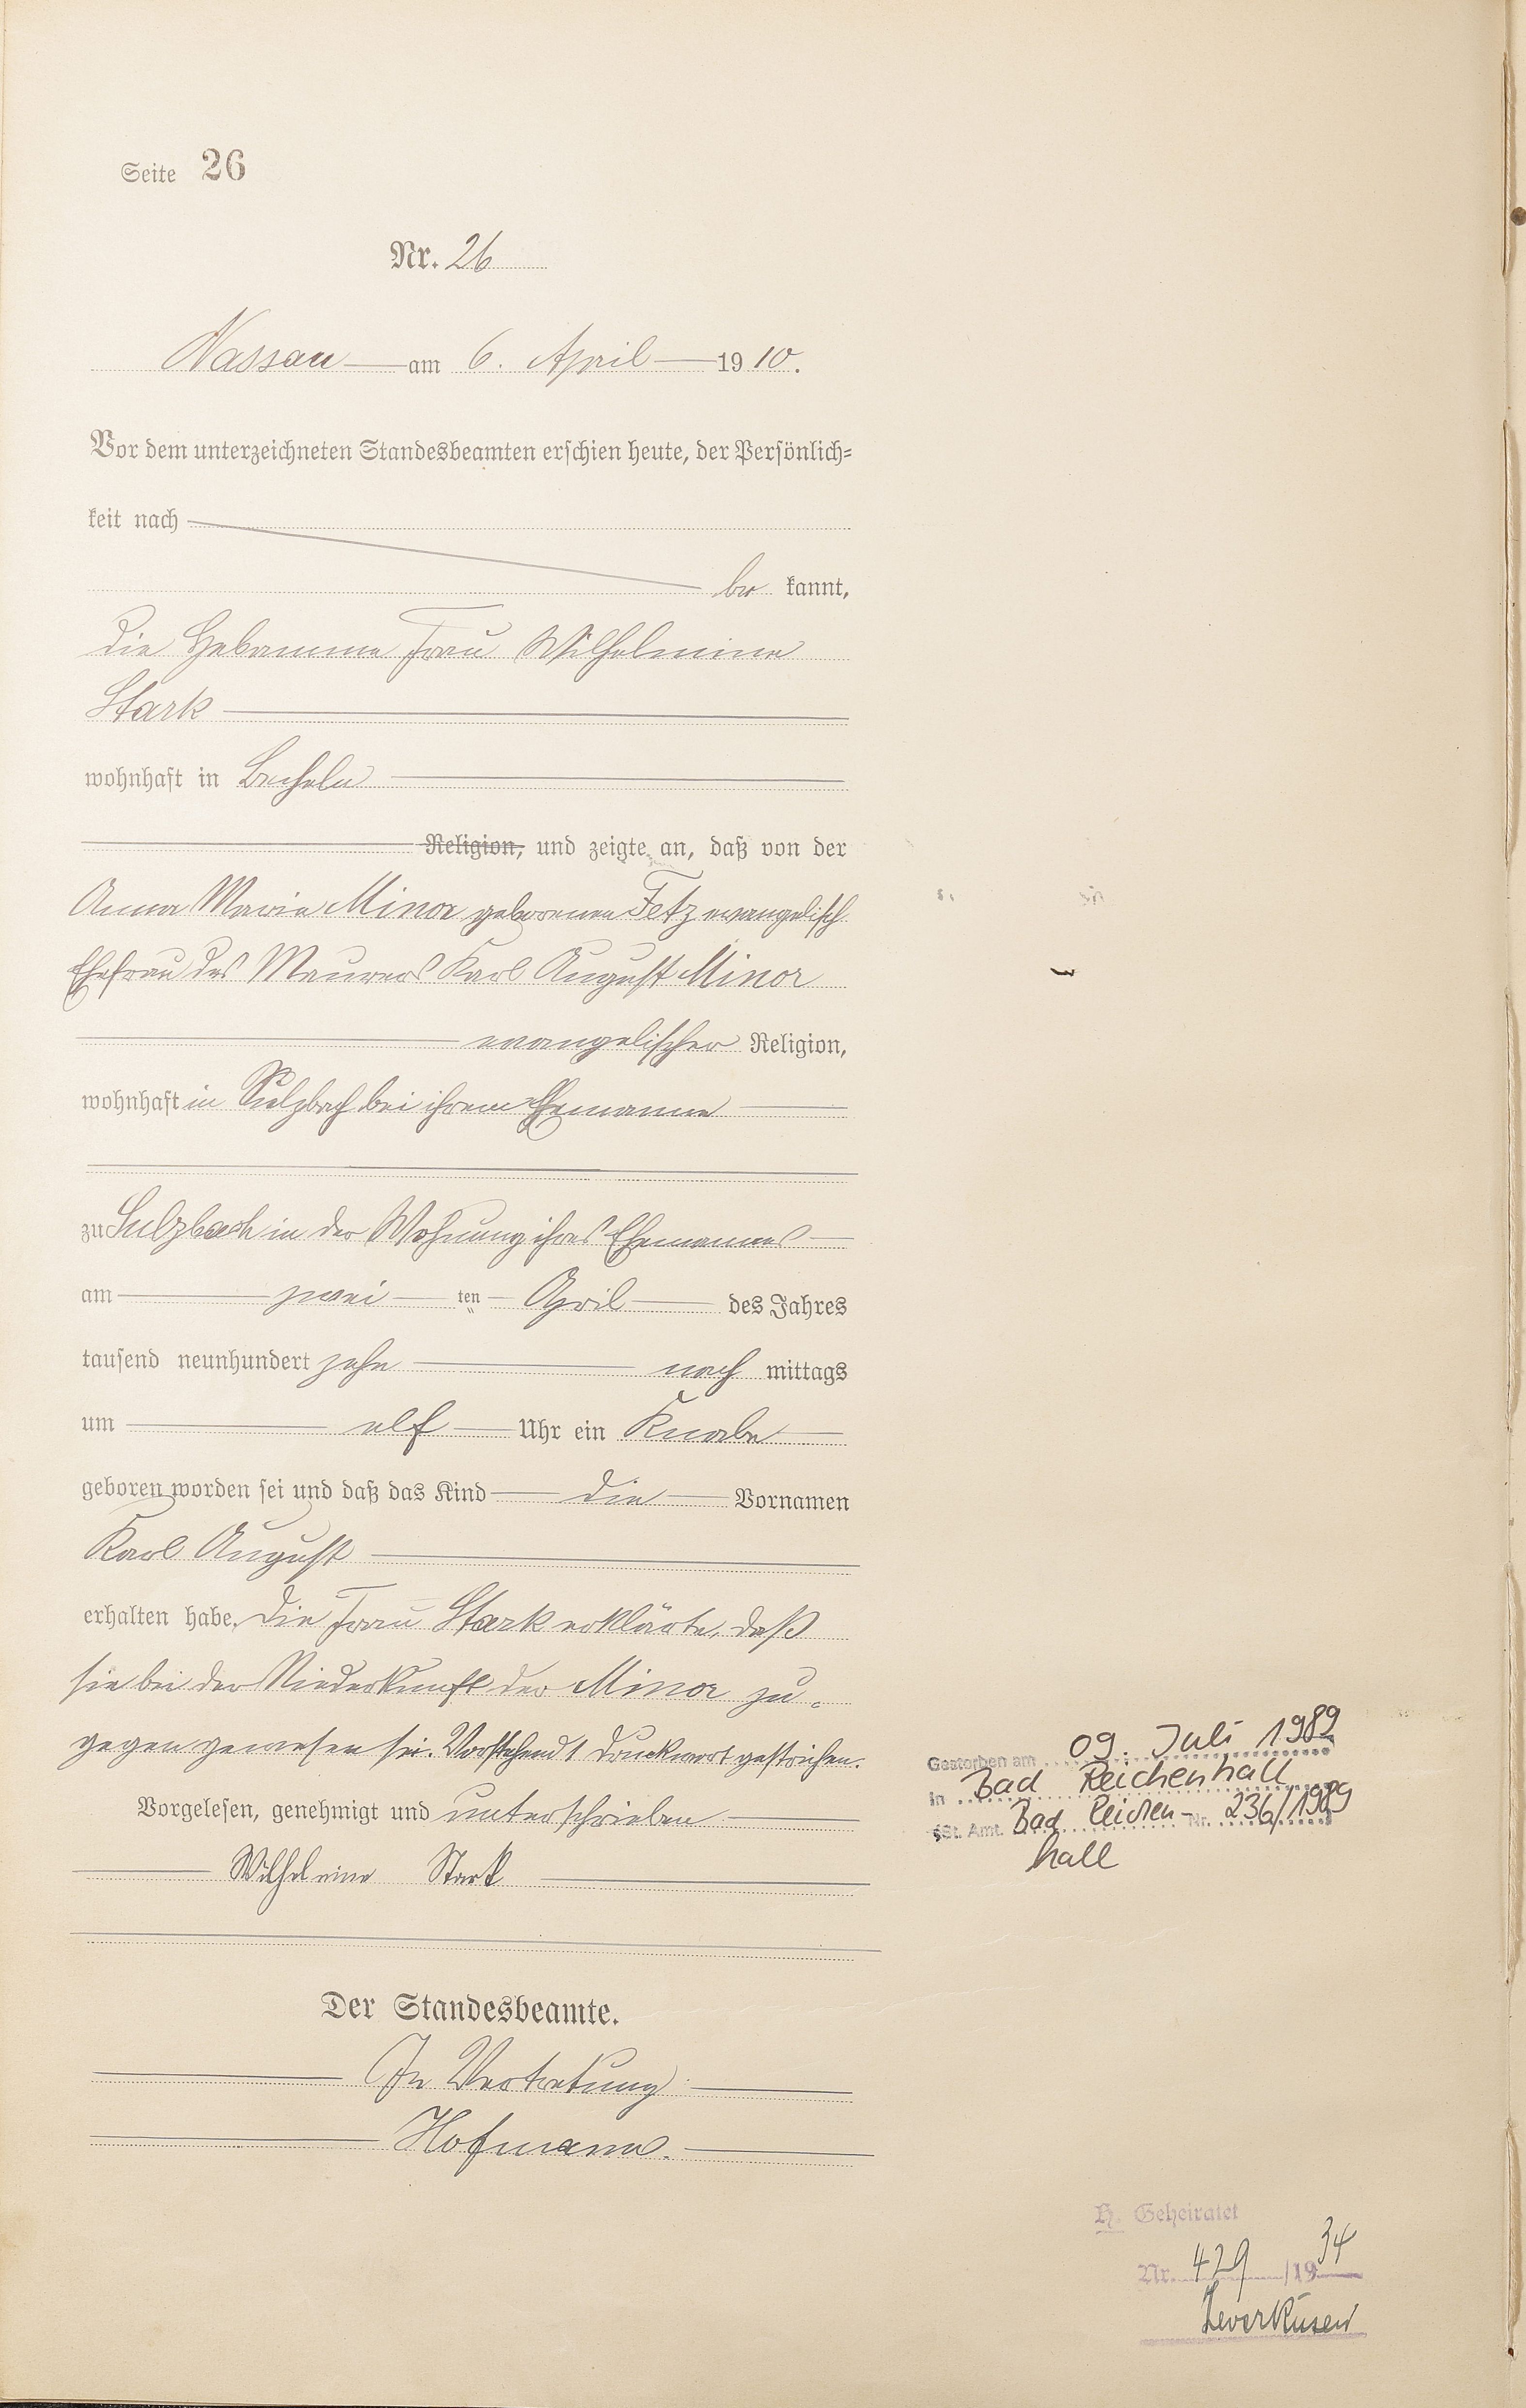 Seite 26
Nr. 26
Nassau am 6. April 1910.
Vor dem unterzeichneten Standesbeamten erschien heute, der Persönlich=
keit nach
be kannt,
die Hebamme Frau Wilhelmine
Stark
wohnhaft in Becheln
Religion, und zeigte an, daß von der
Anna Maria Minor geborenen Fetz evangelisch
Ehefrau des Maurers Karl August Minor
evangelischer Religion,
wohnhaft in Sulzbach bei ihrem Ehemanne
zu Sulzbach in der Wohnung ihres Ehemannes
am zwei ten April des Jahres
tausend neunhundert zehn nach mittags
um elf Uhr ein Knabe
geboren worden sei und daß das Kind die Vornamen
Karl August
erhalten habe. Die Frau Stark erklärte, daß
sie bei der Niederkunft der Minor zu=
gegen gewesen sei. Vorstehend 1 Druckwort gestrichen.
Vorgelesen, genehmigt und unterschrieben
Wilhelmine Stark
Der Standesbeamte.
In Vertretung
Hofmann.
Gestorben am 09. Juli 1989
in Bad Reichenhall
St. Amt. Bad Reichen- Nr. 236/1989
hall
H. Geheiratet
Nr. 429 /1934
Leverkusen